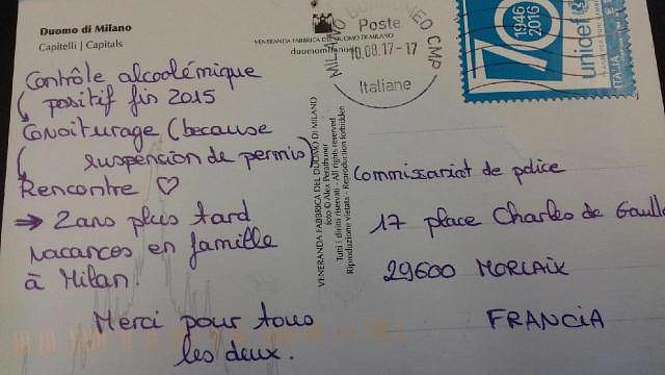 Duomo di Milano
Capitelli | Capitals
Contrôle alcoolémique
positif fin 2015
Covoiturage (because
suspencion de permis)
Rencontre ♡
→ 2 ans plus tard
vacances en famille
à Milan.
Merci pour tous
les deux.
VENERANDA FABBRICA DEL DUOMO DI MILANO
duomomilano
VENERANDA FABBRICA DEL DUOMO DI MILANO
foto © Alex Perathoner
Tutti i diritti riservati - All rights reserved
Riproduzione vietata - Reproduction forbidden
MILANO CMP
Poste
10.08.17-17
Italiane
70
1946
2016
unicef
ITALIA
Commissariat de police
17 place Charles de Gaulle
29600 MORLAIX
FRANCIA